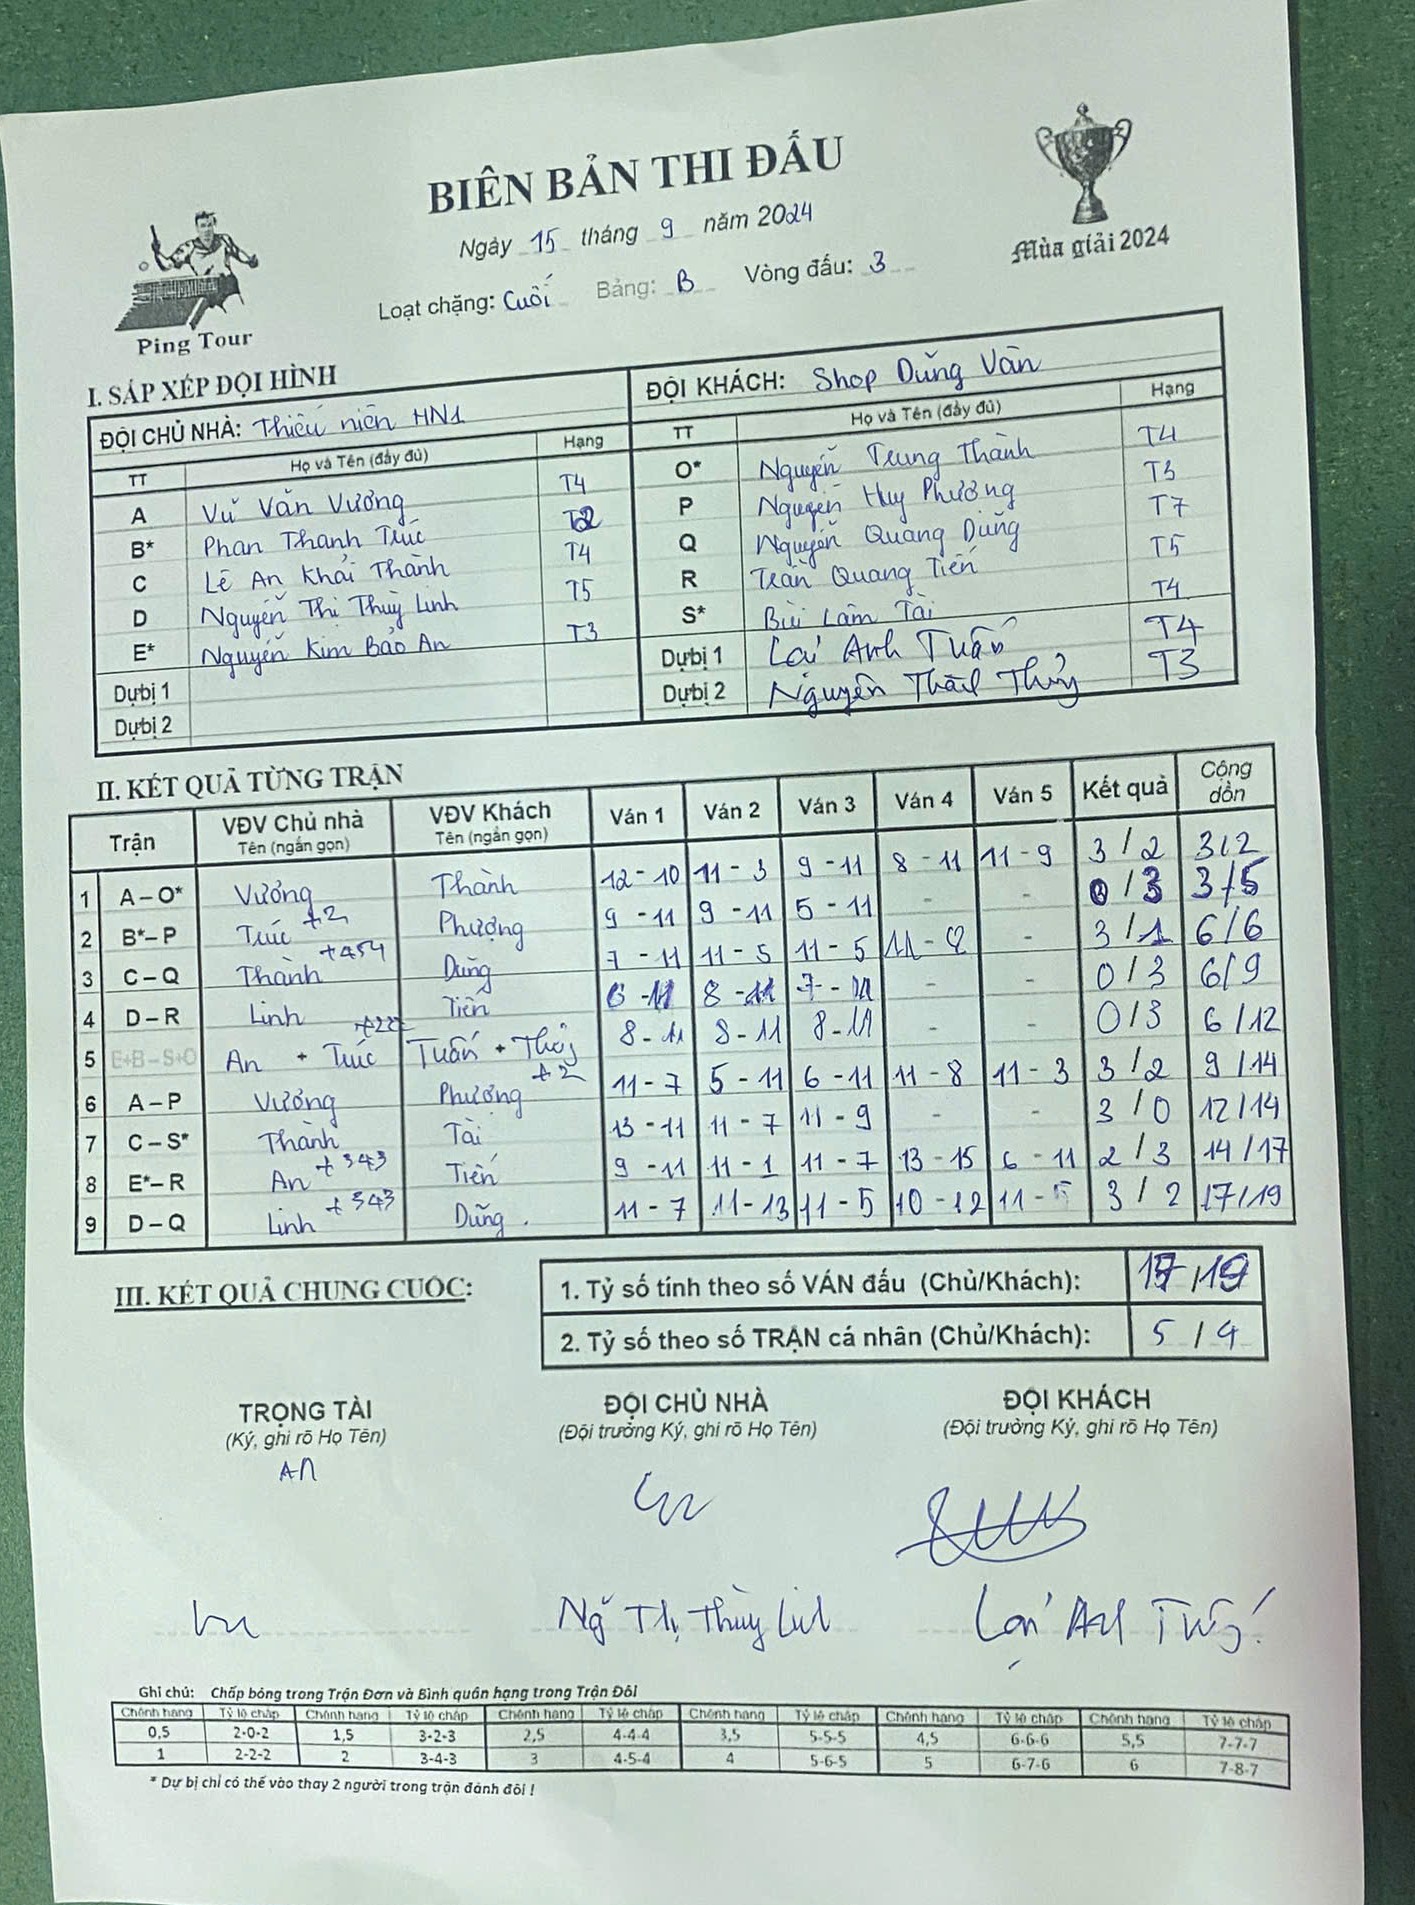 BIÊN BẢN THI ĐẤU
Ngày 15 tháng 9 năm 2024
Loạt chặng: Cuối Bảng: B Vòng đấu: 3
Ping Tour
Mùa giải 2024
I. SẮP XẾP ĐỘI HÌNH
ĐỘI CHỦ NHÀ: Thiếu niên HN1
TT Họ và Tên (đầy đủ) Hạng
A Vũ Văn Vương T4
B* Phan Thanh Trúc T2
C Lê An Khải Thành T4
D Nguyễn Thị Thuỳ Linh T5
E* Nguyễn Kim Bảo An T3
Dự bị 1
Dự bị 2
ĐỘI KHÁCH: Shop Dũng Vân
TT Họ và Tên (đầy đủ) Hạng
O* Nguyễn Trung Thành T4
P Nguyễn Huy Phương T3
Q Nguyễn Quang Dũng T7
R Trần Quang Tiến T5
S* Bùi Lâm Tài T4
Dự bị 1 Lại Anh Tuấn T4
Dự bị 2 Nguyễn Thủy T3
II. KẾT QUẢ TỪNG TRẬN
Trận VĐV Chủ nhà VĐV Khách Ván 1 Ván 2 Ván 3 Ván 4 Ván 5 Kết quả Cộng dồn
Tên (ngắn gọn) Tên (ngắn gọn)
1 A – O* Vương Thành 12 - 10 11 - 3 9 - 11 8 - 11 11 - 9 3 / 2 3/2
2 B* – P Trúc +2 Phương 9 - 11 9 - 11 5 - 11 - - 0 / 3 3/5
3 C – Q Thành +454 Dũng 7 - 11 11 - 5 11 - 5 11 - 8 - 3 / 1 6/6
4 D – R Linh Tiến 6 - 11 8 - 11 7 - 11 - - 0 / 3 6/9
5 E+B – S+O An + Trúc +222 Tuấn + Thủy 8 - 11 8 - 11 8 - 11 - - 0/3 6/12
6 A – P Vương Phương +2 11 - 7 5 - 11 6 - 11 11 - 8 11 - 3 3 / 2 9/14
7 C – S* Thành Tài 13 - 11 11 - 7 11 - 9 - - 3 / 0 12/14
8 E* – R An +343 Tiến 9 - 11 11 - 1 11 - 7 13 - 15 6 - 11 2 / 3 14/17
9 D – Q Linh +343 Dũng. 11 - 7 11 - 13 11 - 5 10 - 12 11 - 5 3 / 2 17/19
III. KẾT QUẢ CHUNG CUỘC:
1. Tỷ số tính theo số VÁN đấu (Chủ/Khách): 17/19
2. Tỷ số theo số TRẬN cá nhân (Chủ/Khách): 5 / 4
TRỌNG TÀI ĐỘI CHỦ NHÀ ĐỘI KHÁCH
(Ký, ghi rõ Họ Tên) (Đội trưởng Ký, ghi rõ Họ Tên) (Đội trưởng Ký, ghi rõ Họ Tên)
An
Ng Thị Thùy Linh Lại Anh Tuấn
Ghi chú: Chấp bóng trong Trận Đơn và Bình quân hạng trong Trận Đôi
Chênh hạng Tỷ lệ chấp Chênh hạng Tỷ lệ chấp Chênh hạng Tỷ lệ chấp Chênh hạng Tỷ lệ chấp Chênh hạng Tỷ lệ chấp Chênh hạng Tỷ lệ chấp
0,5 2-0-2 1,5 3-2-3 2,5 4-4-4 3,5 5-5-5 4,5 6-6-6 5,5 7-7-7
1 2-2-2 2 3-4-3 3 4-5-4 4 5-6-5 5 6-7-6 6 7-8-7
* Dự bị chỉ có thể vào thay 2 người trong trận đánh đôi !